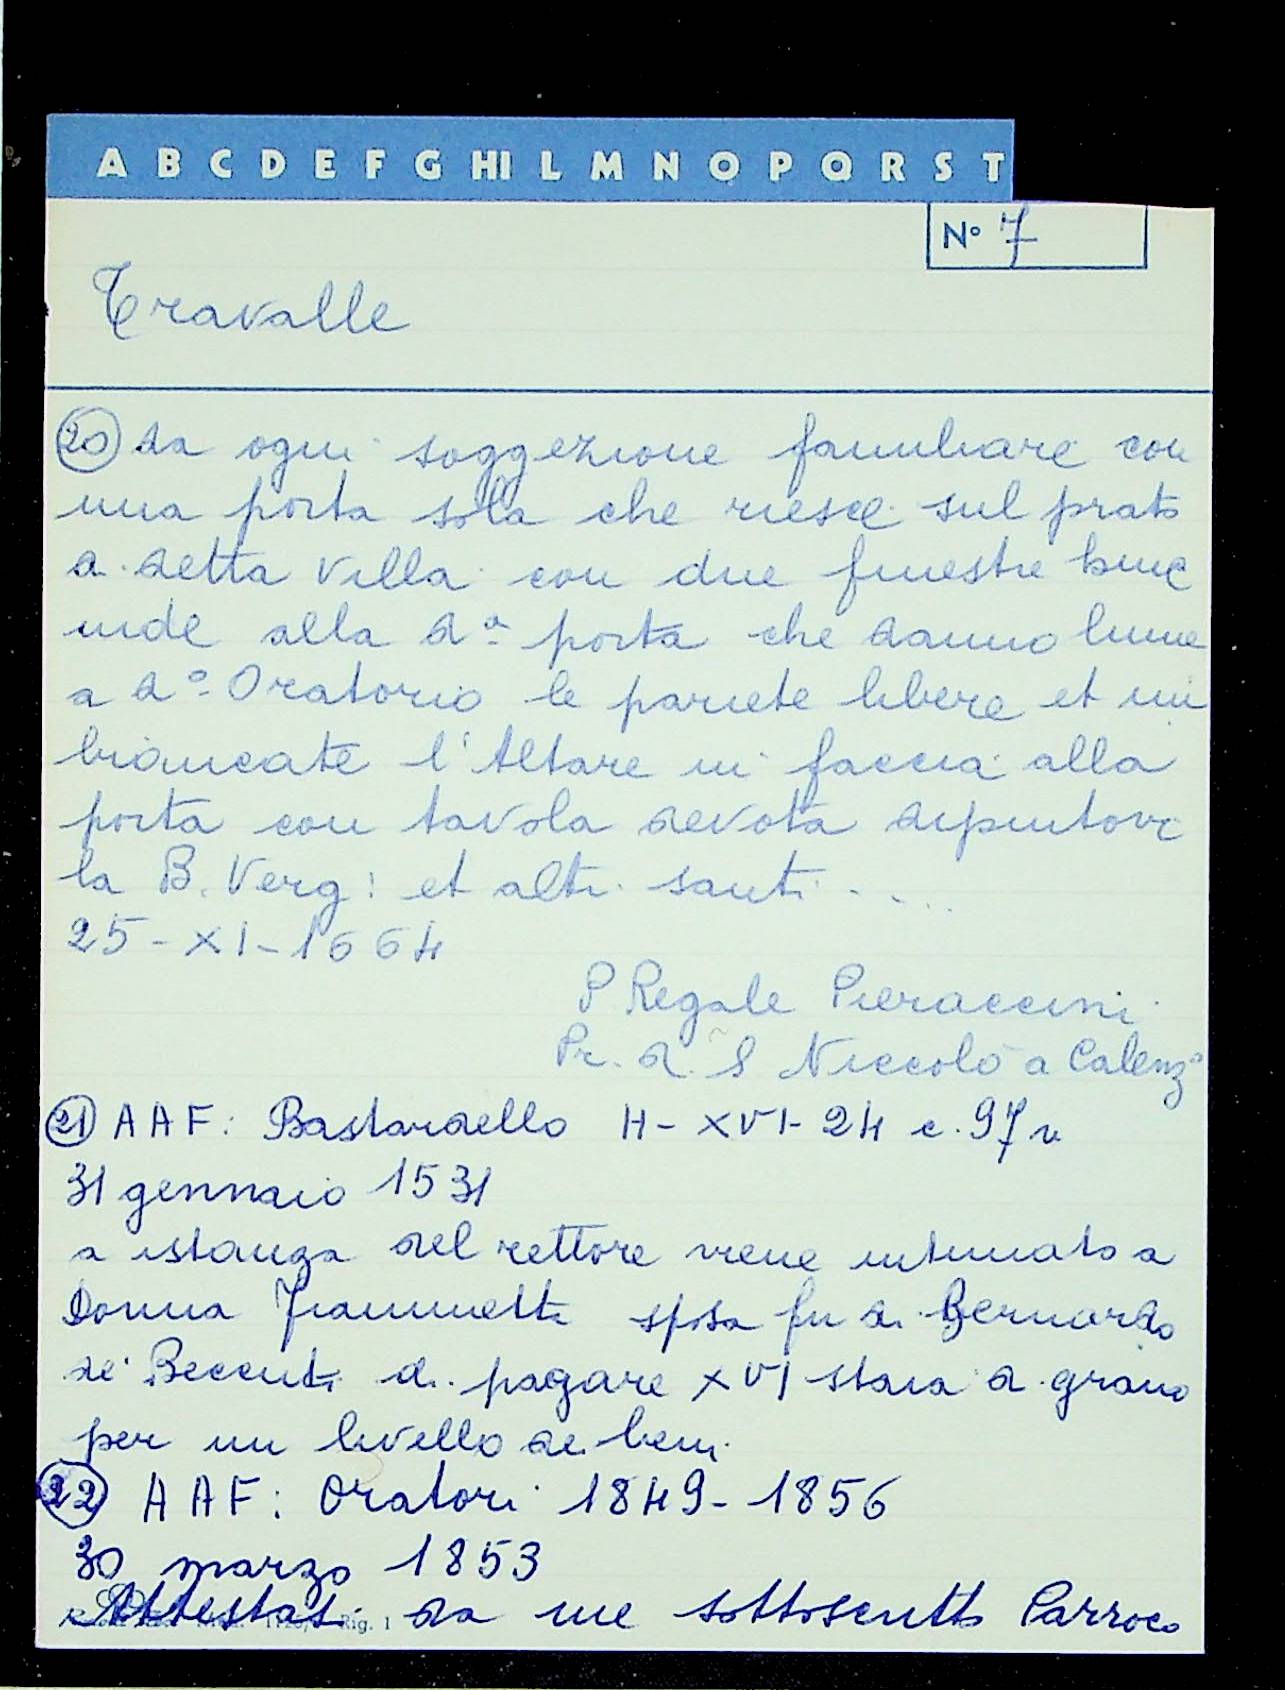 A B C D E F G HI L M N O P Q R S T
N° 7
Travalle
20 da ogni soggezione familiare con
una porta sola che riesce sul prato
di detta villa con due finestre hinc
inde alla d.ª porta che danno lume
a d.º Oratorio le pariete libere et im
biancate l'Altare in faccia alla
porta con tavola devota dipintovi
la B. Verg: et altri santi ....
25-XI-1664
P Regale Pieraccini
Pr. di S Niccolò a Calenz.º
21 AAF: Bastardello H-XVI-24 c. 97v
31 gennaio 1531
a istanza del rettore viene intimato a
Donna Fiammetta sposa fu di Bernardo
de' Beccuti di pagare XVI staia di grano
per un livello di beni
22 AAF: Oratori 1849-1856
30 marzo 1853
Attestasi da me sottoscritto Parroco
Rig. 1